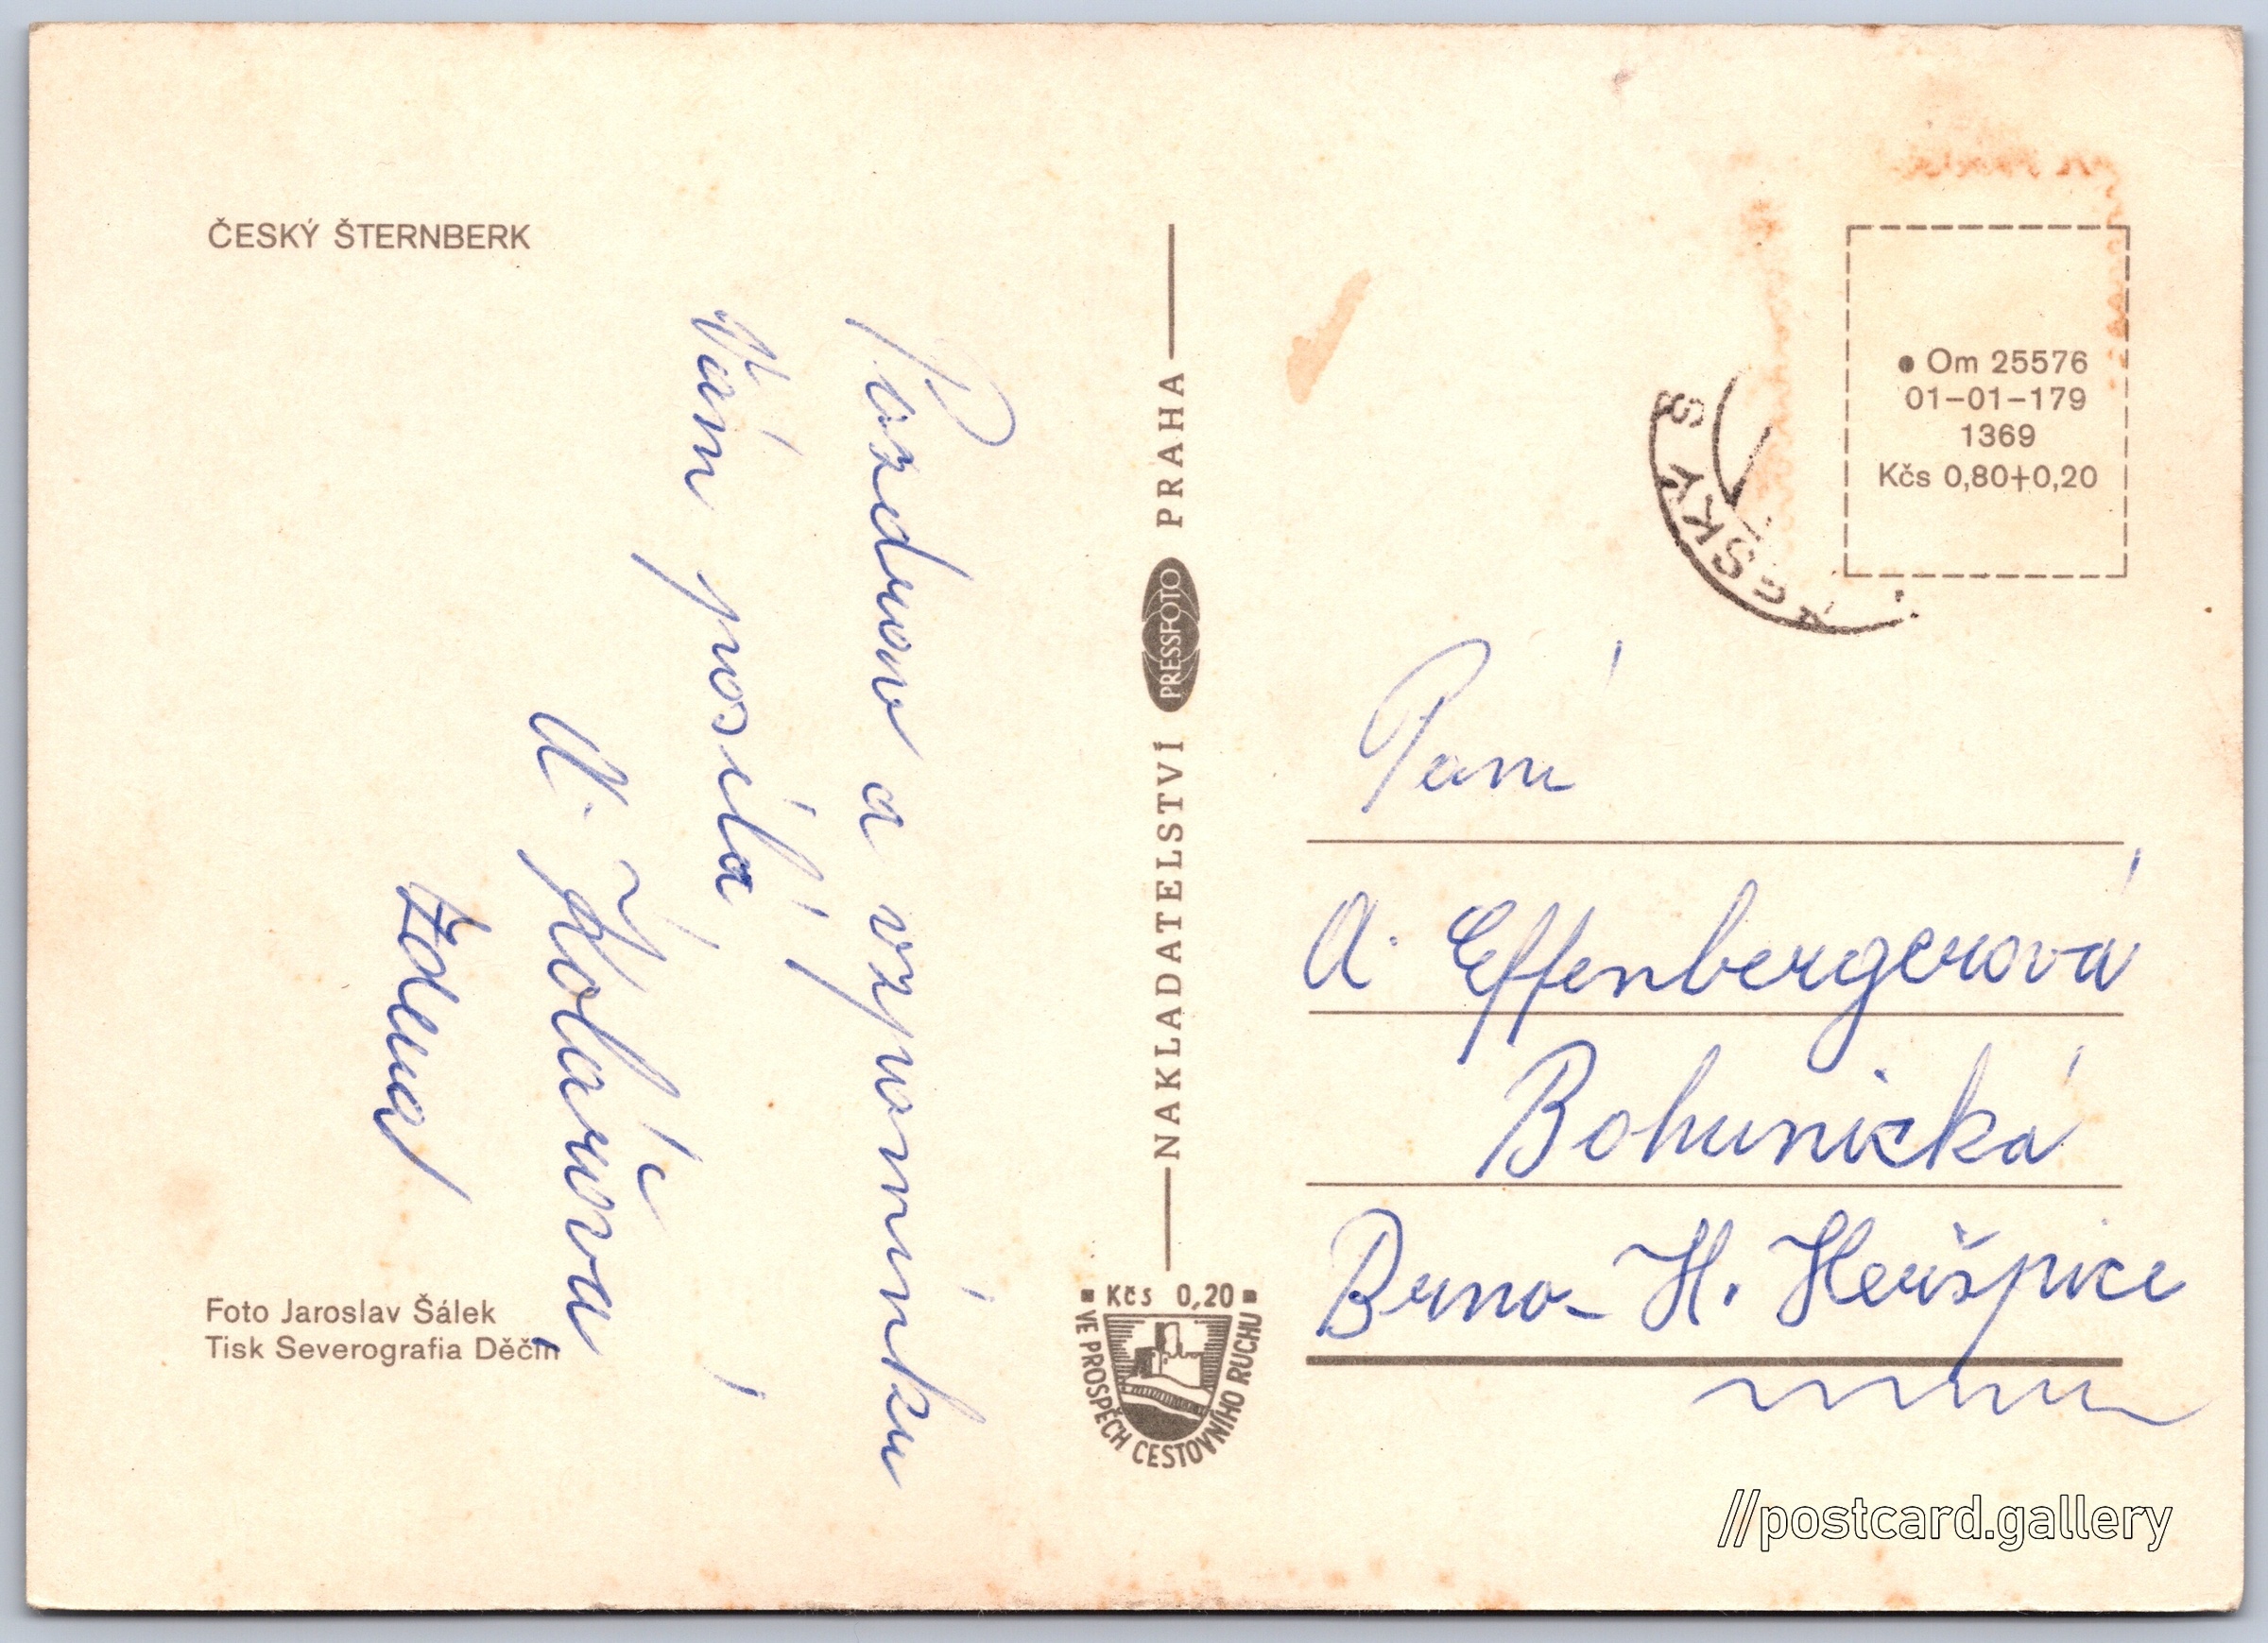 ČESKÝ ŠTERNBERK
Pozdrav a vzpomínku
Vám posílá
Kolářová
Zdena
Foto Jaroslav Šálek
Tisk Severografia Děčín
NAKLADATELSTVÍ PRESSFOTO PRAHA
Kčs 0,20
VE PROSPĚCH CESTOVNÍHO RUCHU
Om 25576
01-01-179
1369
Kčs 0,80+0,20
ČESKÝ Š
Paní
A. Effenbergerová
Bohunická
Brno - H. Heršpice
//postcard.gallery